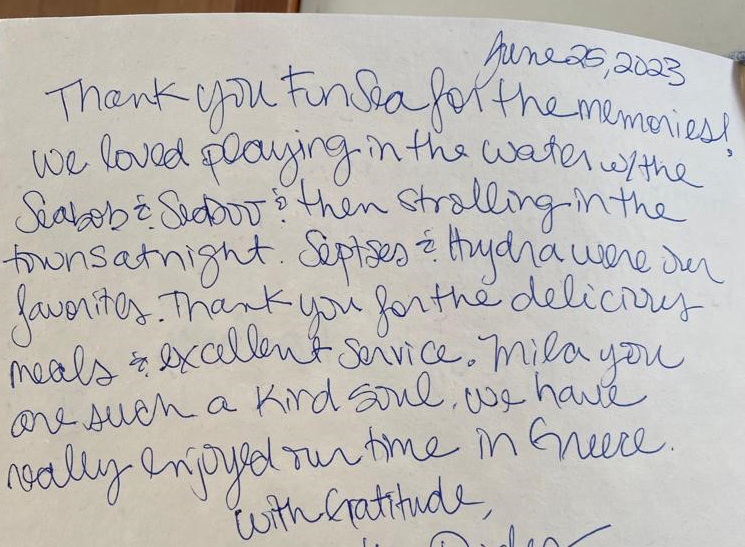 June 25, 2023
Thank you FunSea for the memories!
We loved playing in the water w/the
Seabob & Seadoo & then strolling in the
towns at night. Septses & Hydra were our
favorites. Thank you for the delicious
meals & excellent service. Mila you
are such a kind soul. We have
really enjoyed our time in Greece.
With Gratitude,